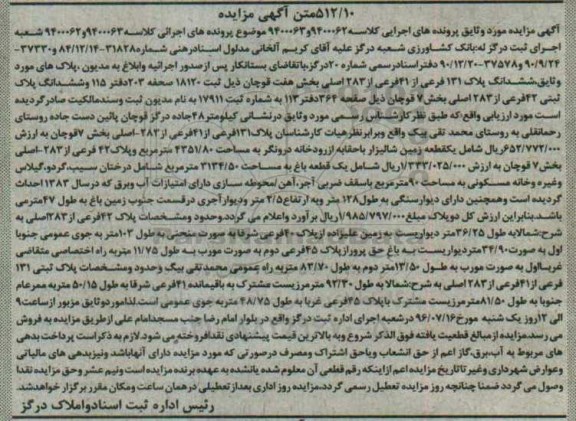 ۵۱۲/۱۰متن آگهی مزایده
آگهی مزایده مورد وثایق پرونده های اجرایی کلاسه۹۴۰۰۰۶۲و۹۴۰۰۰۶۳ موضوع پرونده های اجرائی کلاسه۹۴۰۰۰۶۳و۹۴۰۰۰۶۲ شعبه
اجرای ثبت درگز له:بانک کشاورزی شعبه درگز علیه آقای کریم آلخانی مدلول اسنادرهنی شماره۳۱۸۲۸-۸۴/۱۲/۱۴ و۳۷۳۳۰-
۹۰/۹/۲۴ و۳۷۵۷۸-۹۰/۱۲/۲۰دفتراسنادرسمی شماره ۲۰درگز،باتقاضای بستانکار پس ازصدور اجرائیه وابلاغ به مدیون ،پلاک های مورد
وثایق،ششدانگ پلاک ۱۳۱ فرعی از ۴۱فرعی از ۲۸۳ اصلی بخش هفت قوچان ذیل ثبت ۱۸۱۲۰ صحفه ۲۰۳دفتر ۱۱۵ وششدانگ پلاک
ثبتی ۴۲فرعی از۲۸۳ اصلی بخش۷ قوچان ذیل صفحه ۳۶۴دفتر۱۱۳ به شماره ثبت ۱۷۹۱۱ به نام مدیون ثبت وسندمالکیت صادرگردیده
است مورد ارزیابی واقع،که طبق نظر کارشناس رسمی مورد وثایق درنشانی کیلومتر۴۸جاده درگز قوچان پائین دست جاده روستای
رحمانقلی به روستای محمد تقی بیک واقع وبرابرنظرهیات کارشناسان پلاک۱۳۱فرعی از۴۱فرعی از۲۸۳-اصلی بخش ۷قوچان به ارزش
۶۵۲/۷۷۲/۰۰۰ریال شامل یکقطعه زمین شالیزار باحقابه ازرودخانه درونگر به مساحت ۴۳۵۱/۸۰ مترمربع وپلاک۴۲ فرعی از ۲۸۳-اصلی
بخش۷ قوچان به ارزش ۱/۳۳۳/۰۲۵/۰۰۰ریال شامل یک قطعه باغ به مساحت ۳۱۳۴/۵۰ مترمربع شامل درختان سیب،گردو،گیلاس
وغیره وخانه مسکونی به مساحت ۹۰مترمربع باسقف ضربی آجر،آهن/محوطه سازی دارای امتیازات آب وبرق که درسال ۱۳۸۳احداث
گردیده است وهمچنین دارای دیوارسنگی به طول۱۲۸ متر وبه ارتفاع۲/۵ متر ودیوارآجری درقسمت جنوب زمین باغ به طول ۴۷مترمی
باشد،بنابراین ارزش کل دوپلاک مبلغ۱/۹۸۵/۷۹۷/۰۰۰ریال برآورد واعلام می گردد.وحدود ومشخصات پلاک ۴۲فرعی از۲۸۳اصلی به
شرح:شمالابه طول ۳۶/۲۵متر دیواریست به زمین علیزاده ازپلاک ۴۰فرعی شرقا به صورت منحنی به طول ۱۰۳متر به جوی عمومی جنوبا
اول به صورت ۳۴/۹۰متردیواریست به باغ حق پروراز پلاک ۴۵فرعی دوم به صورت مورب به طول ۱۱/۷۵ متربه راه اختصاصی متقاضی
غربااول به صورت مورب به طول ۱۳/۵۰متر دوم به طول ۸۳/۷۰ متربه راه عمومی محمدتقی بیگ وحدود ومشخصات پلاک ثبتی ۱۳۱
فرعی از ۴۱فرعی از ۲۸۳ اصلی به شرح:شمالا به طول ۹۲/۳۰ مترمرزیست مشترک به باقیمانده ۴۱فرعی شرقا به طول ۵۰/۱۵متربه ممرعام
جنوبا به طول ۸۱/۵۰مترمرزیست مشترک باپلاک ۴۵فرعی غربا به طول ۴۸/۷۵ متربه جوی عمومی است.لذاموردوثایق مزبور ازساعت۹
الی ۱۲روز یک شنبه مورخ۹۶/۰۷/۱۶ درشعبه اجرای اداره ثبت درگز واقع در بلوار امام رضا جنب مسجدامام علی ازطریق مزایده به فروش
می رسد.مزایده ازمبالغ قطعیت یافته فوق الذکر شروع وبه بالاترین قیمت پیشنهادی نقدافروخته می شود.لازم به ذکراست پرداخت بدهی
های مربوط به آب،برق،گاز اعم از حق انشعاب ویاحق اشتراک ومصرف درصورتی که مورد مزایده دارای آنهاباشد ونیزبدهی های مالیاتی
وعوارض شهرداری وغیر تاتاریخ مزایده اعم ازاینکه رقم قطعی آن معلوم شده یانشده به عهده برنده مزایده است ونیم عشر وحق مزایده نقدا
وصول می گردد ضمنا چنانچه روز مزایده تعطیل رسمی گردد،مزایده روز اداری بعدازتعطیلی درهمان ساعت ومکان مقرر برگزار خواهدشد.
رئیس اداره ثبت اسنادواملاک درگز